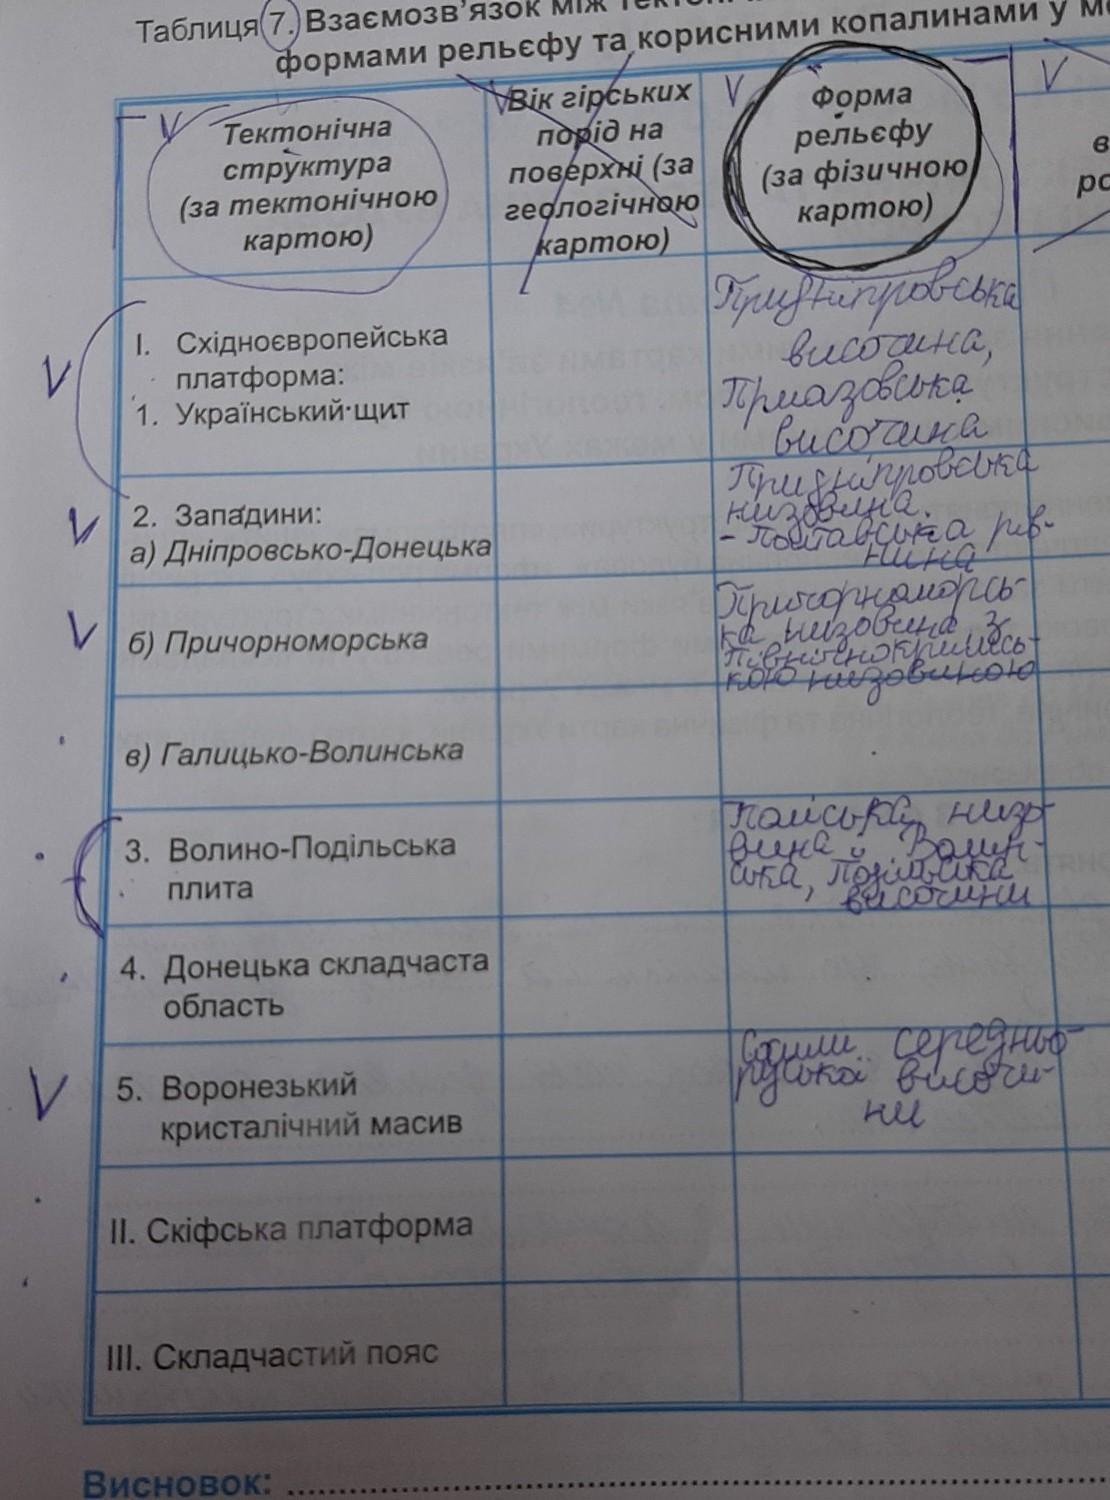 Таблиця 7. Взаємозв'язок між
формами рельєфу та корисними копалинами у
Тектонічна
структура
(за тектонічною
картою)
Вік гірських
порід на
поверхні (за
геологічною
картою)
Форма
рельєфу
(за фізичною
картою)
I. Східноєвропейська
платформа:
1. Український щит
Придніпровська
височина,
Приазовська
височина
2. Западини:
а) Дніпровсько-Донецька
Придніпровська
низовина.
- Полтавська рів-
нина
б) Причорноморська
Причорноморсь-
ка низовина з
Північнокримсь-
кою низовиною
в) Галицько-Волинська
3. Волино-Подільська
плита
низо-
вина Волин-
ська, Подільська
височини
4. Донецька складчаста
область
5. Воронезький
кристалічний масив
середньо-
руської височи-
ни
II. Скіфська платформа
III. Складчастий пояс
Висновок: